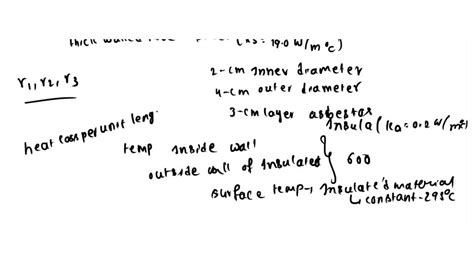 thick walled (ks = 19.0 W/m°C)
r1, r2, r3
2-cm inner diameter
4-cm outer diameter
3-cm layer asbestos
insula (ka = 0.2 W/m°C)
heat loss per unit leng.
temp inside wall
outside wall of insulated } 600
surface temp → insulate's material
↳ constant - 293°C